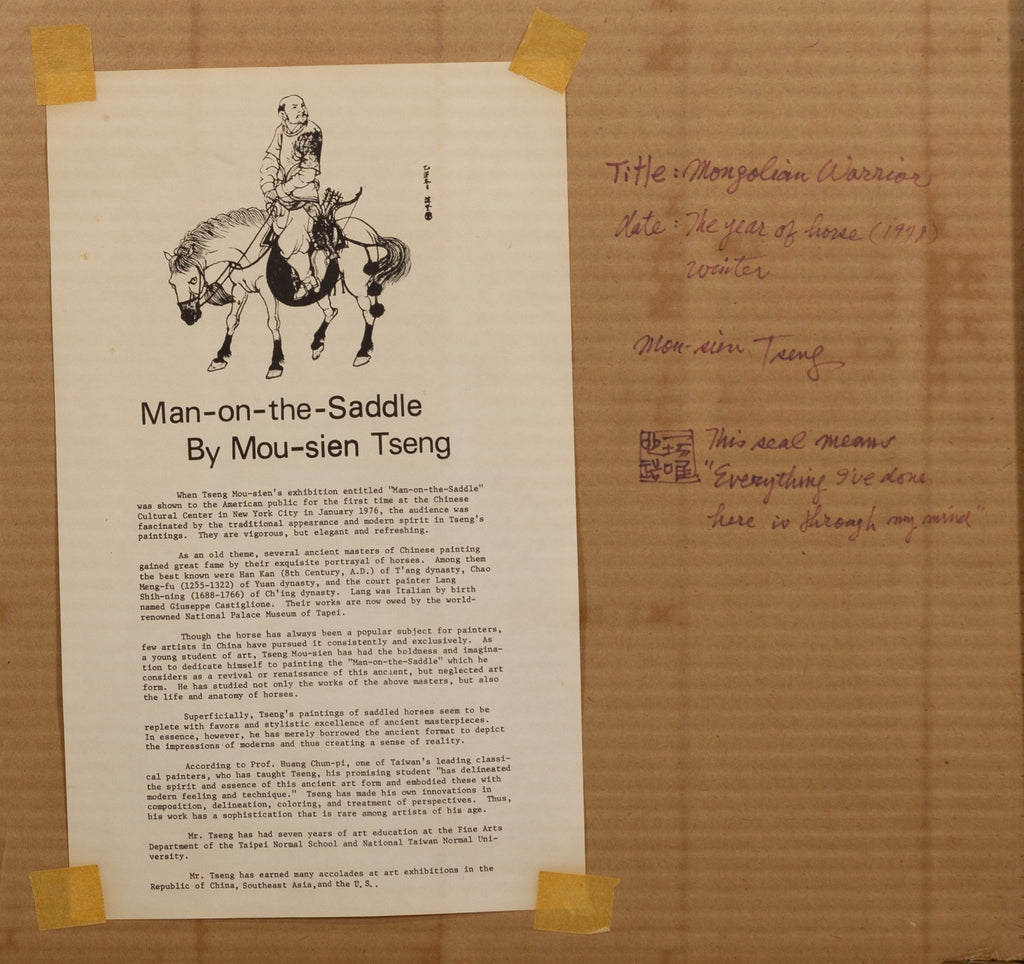 Man-on-the-Saddle
By Mou-sien Tseng
When Tseng Mou-sien's exhibition entitled "Man-on-the-Saddle"
was shown to the American public for the first time at the Chinese
Cultural Center in New York City in January 1976, the audience was
fascinated by the traditional appearance and modern spirit in Tseng's
paintings. They are vigorous, but elegant and refreshing.
As an old theme, several ancient masters of Chinese painting
gained great fame by their exquisite portrayal of horses. Among them
the best known were Han Kan (8th Century, A.D.) of T'ang dynasty, Chao
Meng-fu (1255-1322) of Yuan dynasty, and the court painter Lang
Shih-ning (1688-1766) of Ch'ing dynasty. Lang was Italian by birth
named Giuseppe Castiglione. Their works are now owed by the world-
renowned National Palace Museum of Tapei.
Though the horse has always been a popular subject for painters,
few artists in China have pursued it consistently and exclusively. As
a young student of art, Tseng Mou-sien has had the boldness and imagina-
tion to dedicate himself to painting the "Man-on-the-Saddle" which he
considers as a revival or renaissance of this ancient, but neglected art
form. He has studied not only the works of the above masters, but also
the life and anatomy of horses.
Superficially, Tseng's paintings of saddled horses seem to be
replete with favors and stylistic excellence of ancient masterpieces.
In essence, however, he has merely borrowed the ancient format to depict
the impressions of moderns and thus creating a sense of reality.
According to Prof. Huang Chun-pi, one of Taiwan's leading classi-
cal painters, who has taught Tseng, his promising student "has delineated
the spirit and essence of this ancient art form and embodied these with
modern feeling and technique." Tseng has made his own innovations in
composition, delineation, coloring, and treatment of perspectives. Thus,
his work has a sophistication that is rare among artists of his age.
Mr. Tseng has had seven years of art education at the Fine Arts
Department of the Taipei Normal School and National Taiwan Normal Uni-
versity.
Mr. Tseng has earned many accolades at art exhibitions in the
Republic of China, Southeast Asia,and the U.S..
Title: Mongolian Warrior
date: The year of horse (1978)
winter
Mou-sien Tseng
This seal means
"Everything I've done
here is through my mind"